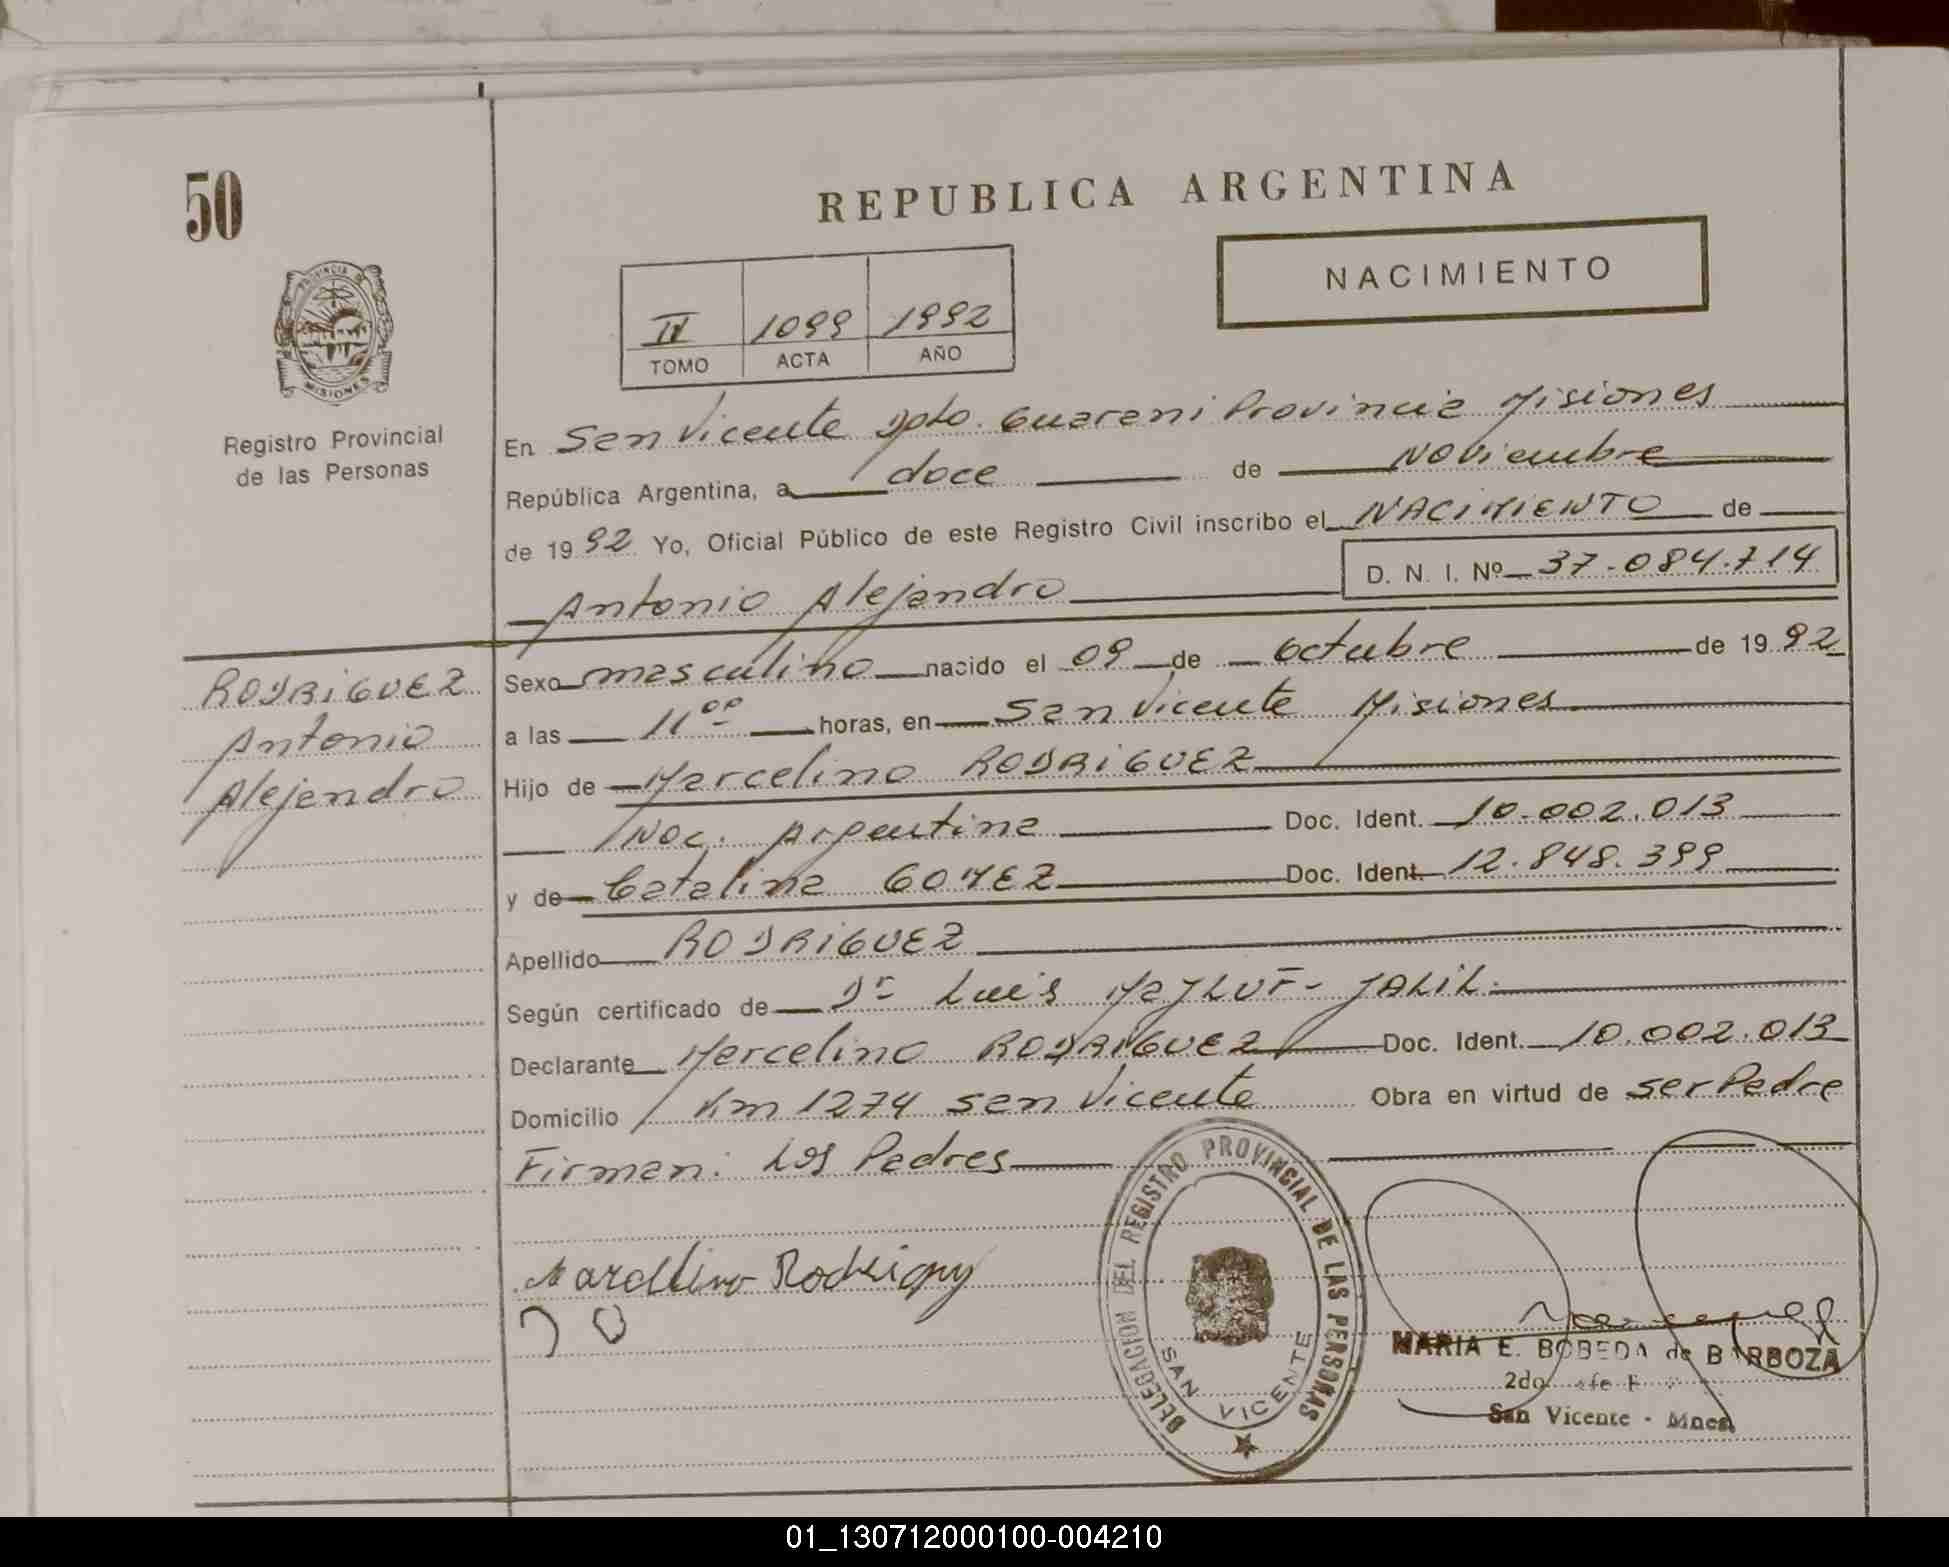 50
REPUBLICA ARGENTINA
NACIMIENTO
PROVINCIA DE
MISIONES
Registro Provincial
de las Personas
IV 1099 1992
TOMO ACTA AÑO
En San Vicente Dpto. Guarani Provincia Misiones
República Argentina, a doce de Noviembre
de 1992 Yo, Oficial Público de este Registro Civil inscribo el NACIMIENTO de
D. N. I. Nº 37.084.714
Antonio Alejandro
RODRIGUEZ
Antonio
Alejandro
Sexo masculino nacido el 09 de Octubre de 1992
a las 11 00 horas, en San Vicente Misiones
Hijo de Marcelino RODRIGUEZ
Nac. Argentina Doc. Ident. 10.002.013
y de Catalina GOMEZ Doc. Ident. 12.848.399
Apellido RODRIGUEZ
Según certificado de Dr Luis MAJLUF - JALIL.
Declarante Marcelino RODRIGUEZ Doc. Ident. 10.002.013
Domicilio Km 1274 San Vicente Obra en virtud de ser Padre
Firman: Los Padres
Marcelino Rodriguez
DELEGACION DEL REGISTRO PROVINCIAL DE LAS PERSONAS
SAN VICENTE
MARIA E. BOBEDA de BARBOZA
2do
San Vicente - Mnes.
01_130712000100-004210